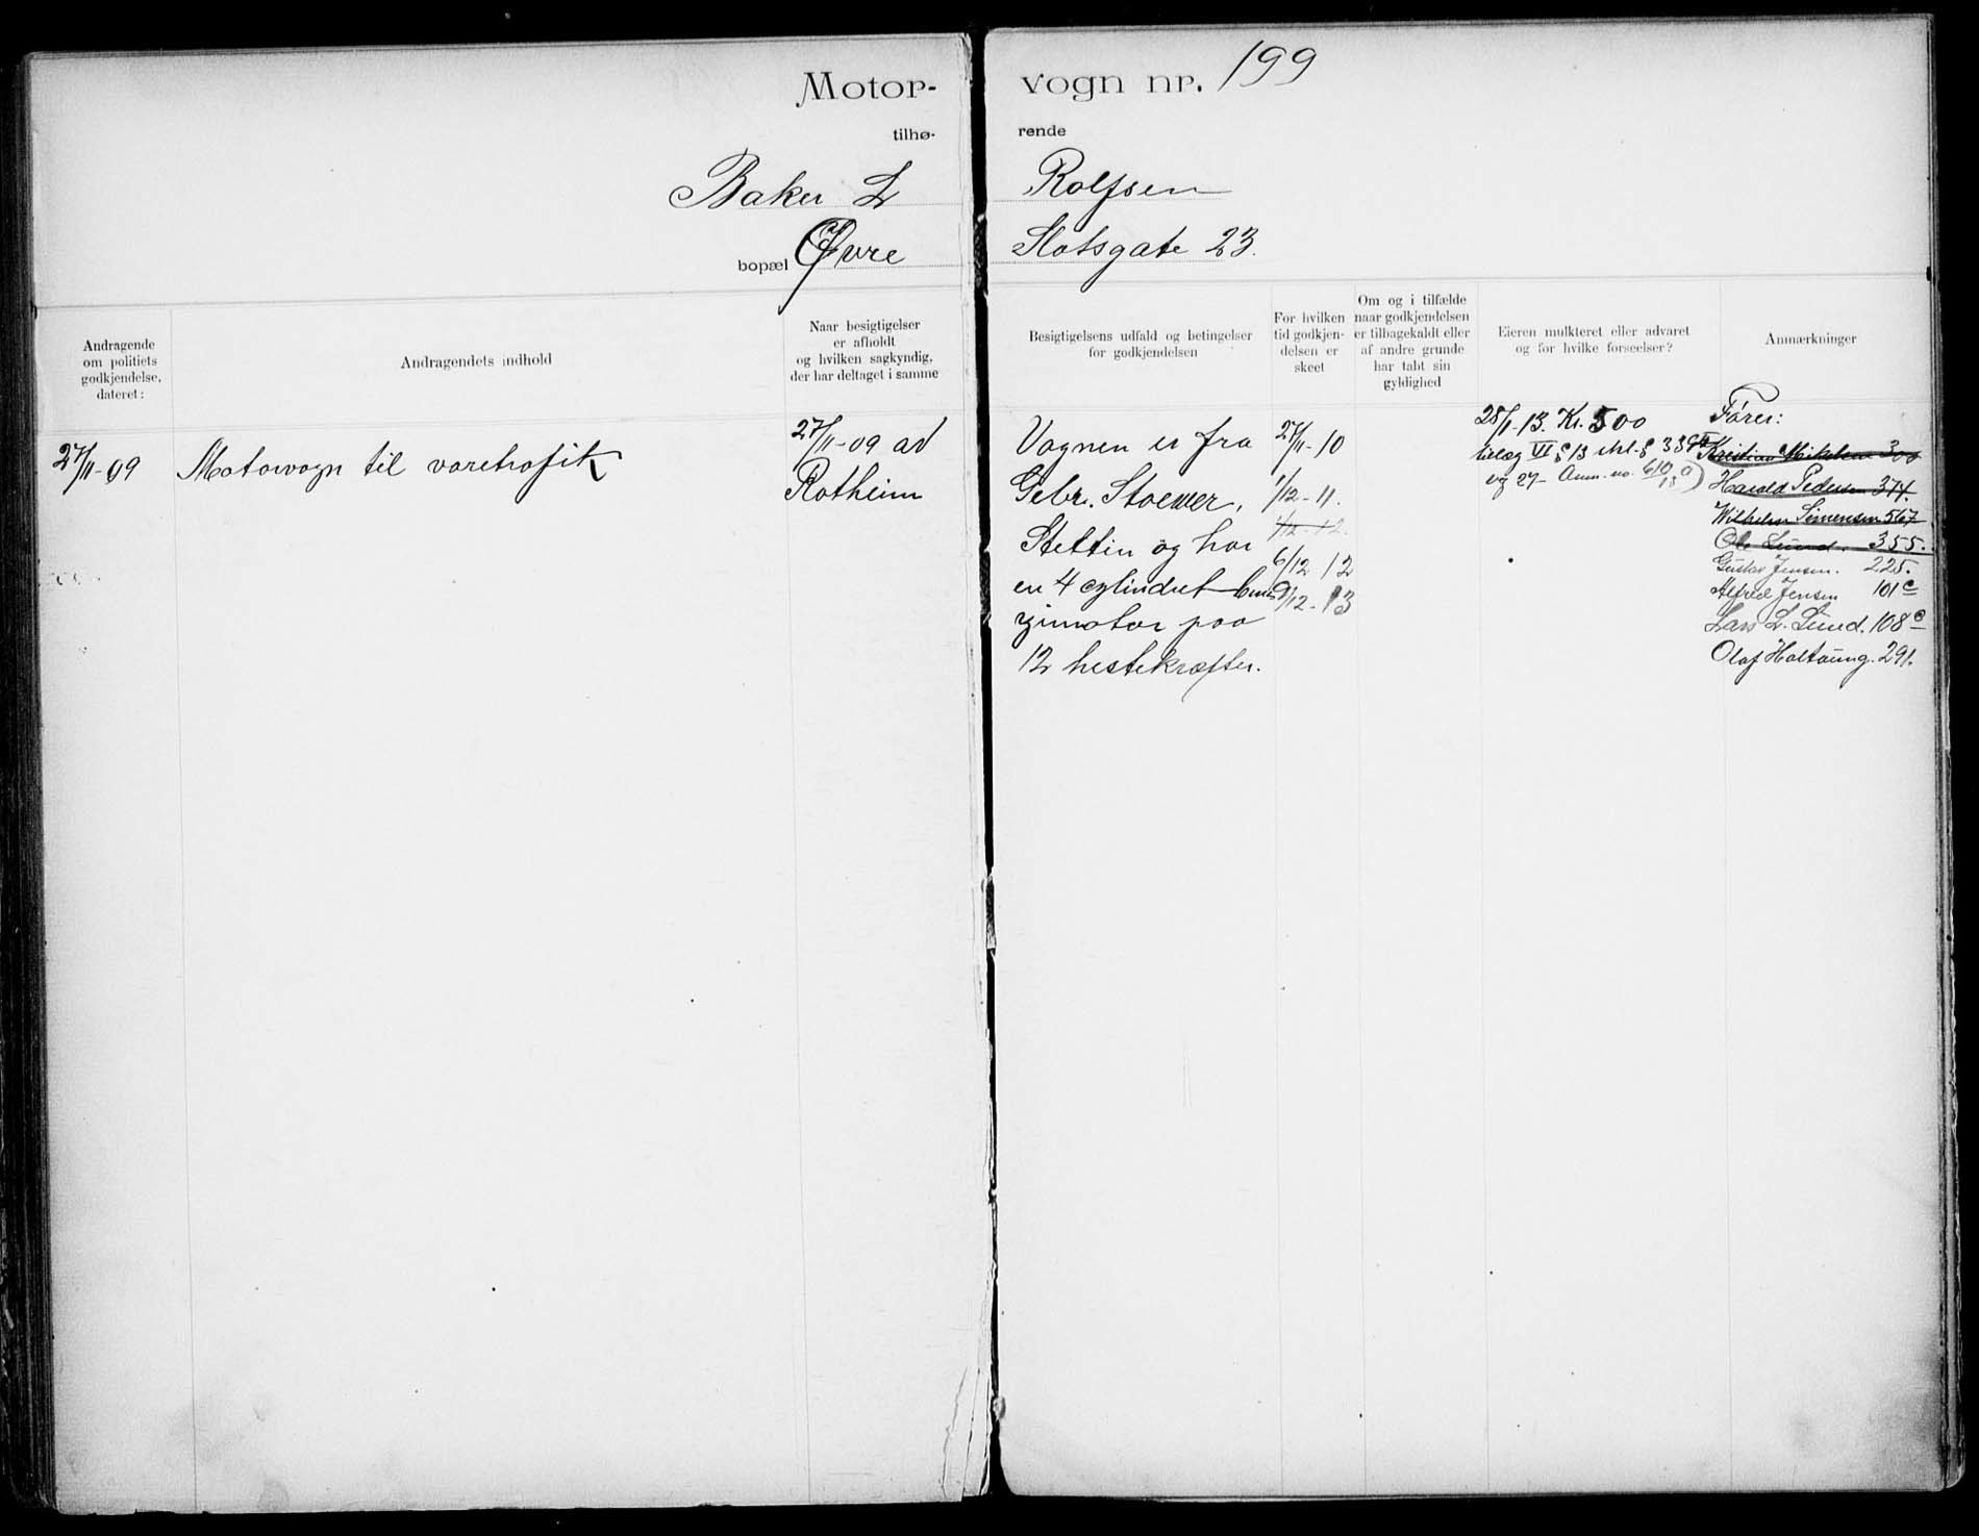 Motor-vogn nr. 199
tilhø-rende
Baker L Rolfsen
bopæl Øvre Slotsgate 23.
Andragende
om politiets
godkjendelse,
dateret:
Andragendets indhold
Naar besigtigelser
er afholdt
og hvilken sagkyndig,
der har deltaget i samme
Besigtigelsens udfald og betingelser
for godkjendelsen
For hvilken
tid godkjen-
delsen er
skeet
Om og i tilfælde
naar godkjendelsen
er tilbagekaldt eller
af andre grunde
har tabt sin
gyldighed
Eieren mulkteret eller advaret
og for hvilke forseelser?
Anmærkninger
27/11-09
Motorvogn til varetrafik
27/11-09 av
Rotheim
Vognen er fra
Gebr. Stoewer,
Stettin og har
en 4 cylindret ben-
zinmotor paa
12 hestekræfter.
27/11-10
1/12-11.
1/12-12.
6/12 12
9/12-13
28/1-13. Kr. 500
tillæg VI § 13 skl. §
og 27 Anm. no. 610
Fører:
Kristian Mikelsen 300
Harald Pedersen 374.
Wilhelm Simensen 567
Ole Lund. 355.
Gustav Jensen. 225.
Alfred Jensen 101 c
Lars L. Lund. 108 c
Olaf Holtoung. 291.